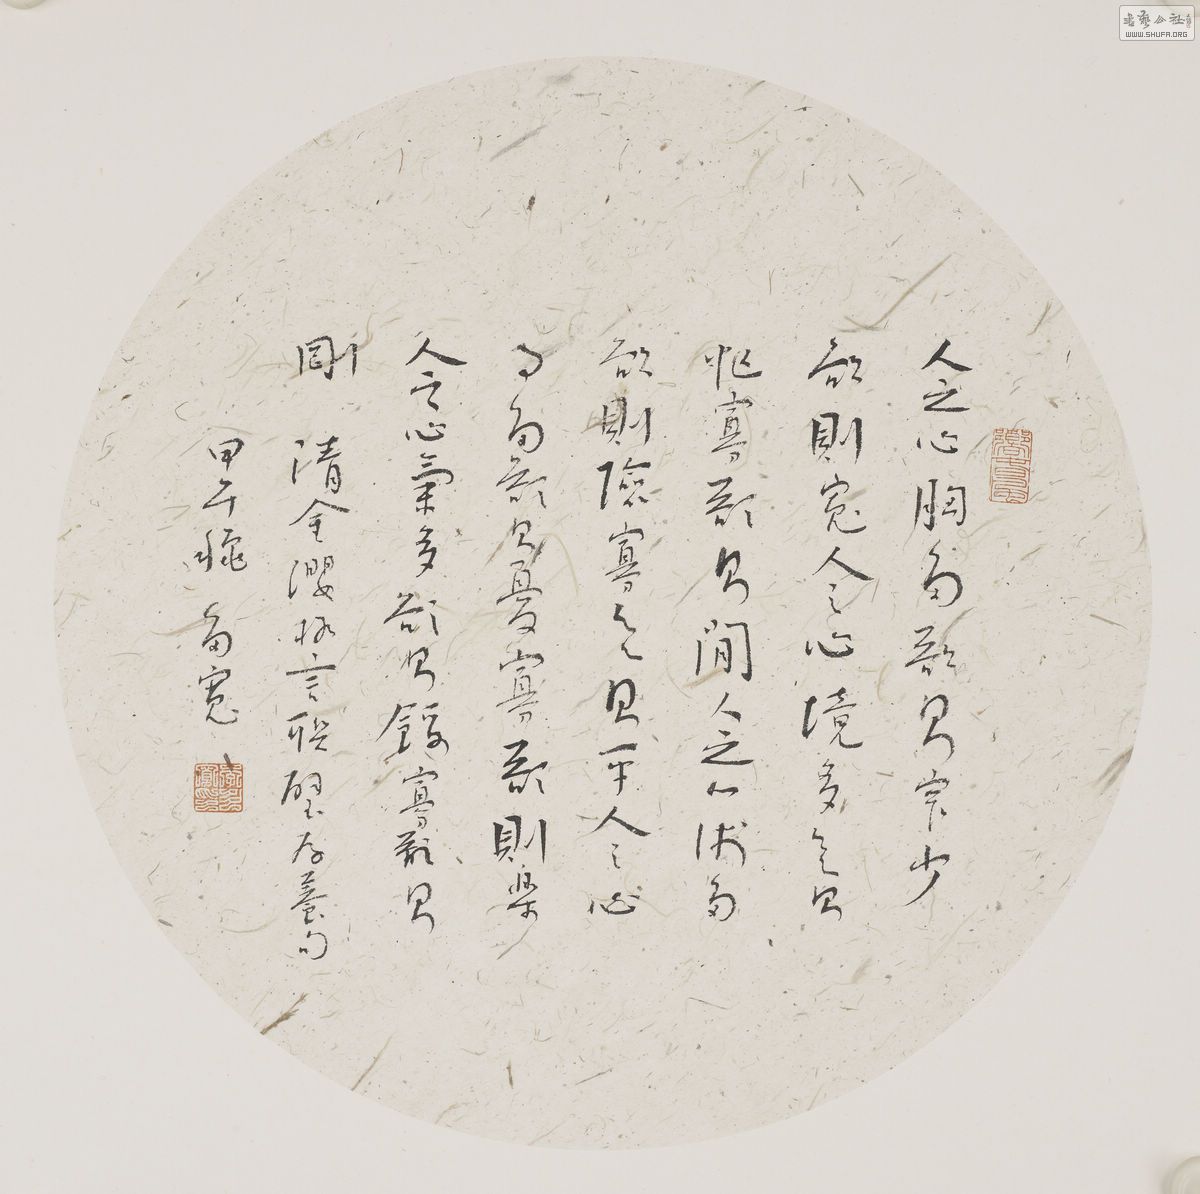 人之心胸多欲則窄少
欲則寬人之心境多欲則
忙寡欲則閒人之心術多
欲則險寡欲則平人之心
事多欲則憂寡欲則樂
人之心氣多欲則餒寡欲則
剛 清金纓格言联璧存養句
甲午穐
書藝公社
WWW.SHUFA.ORG